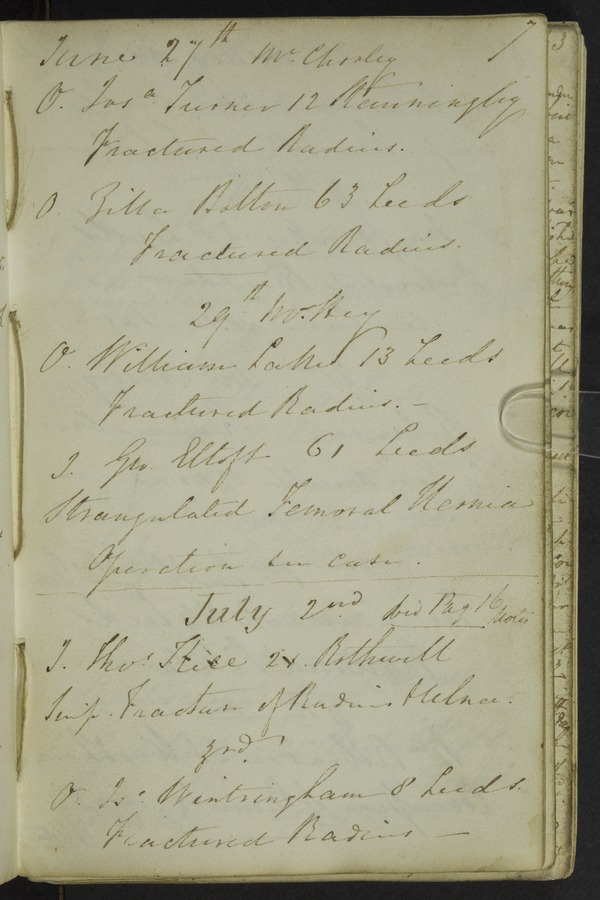 June 27th Mr Chorley 7
O. Josa Turner 12 Stanningley
Fractured Radius.
O. Zilla Bolton 63 Leeds
Fractured Radius.
29th Mr. Hey
O. William Lake 13 Leeds
Fractured Radius. —
I. Geo. Eltoft 61 Leeds
Strangulated Femoral Hernia
Operation see case.
July 2nd Vid Pag 16
I. Thos. Rice 21. Rothwell
Simp. Fracture of Radius & Ulna.
3rd.
O. Isc. Wintringham 8 Leeds.
Fractured Radius —